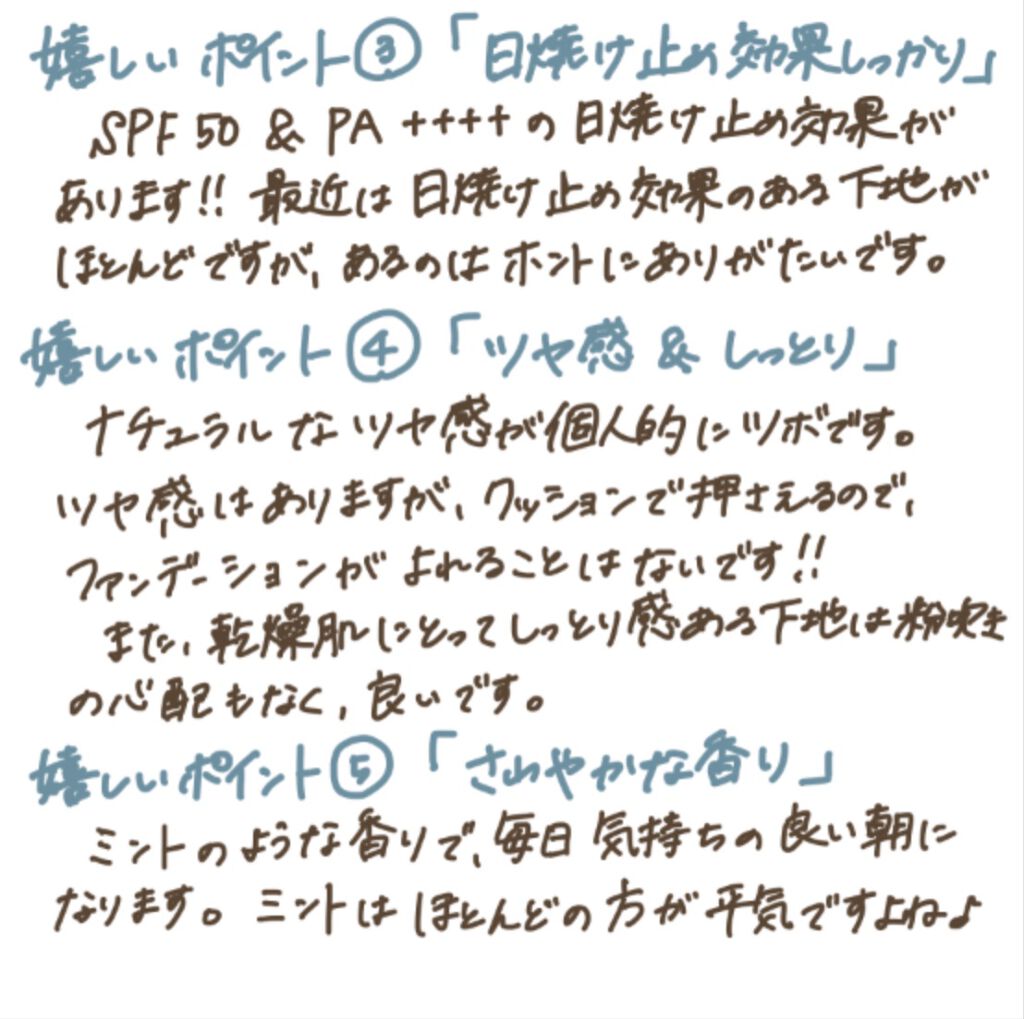 嬉しいポイント③「日焼け止め効果しっかり」
SPF50 & PA++++の日焼け止め効果が
あります!! 最近は日焼け止め効果のある下地が
ほとんどですが、あるのはホントにありがたいです。
嬉しいポイント④「ツヤ感&しっとり」
ナチュラルなツヤ感が個人的にツボです。
ツヤ感はありますが、クッションで押さえるので、
ファンデーションがよれることはないです!!
また、乾燥肌にとってしっとり感ある下地は粉吹き
の心配もなく、良いです。
嬉しいポイント⑤「さわやかな香り」
ミントのような香りで、毎日気持ちの良い朝に
なります。ミントはほとんどの方が平気ですよね♪